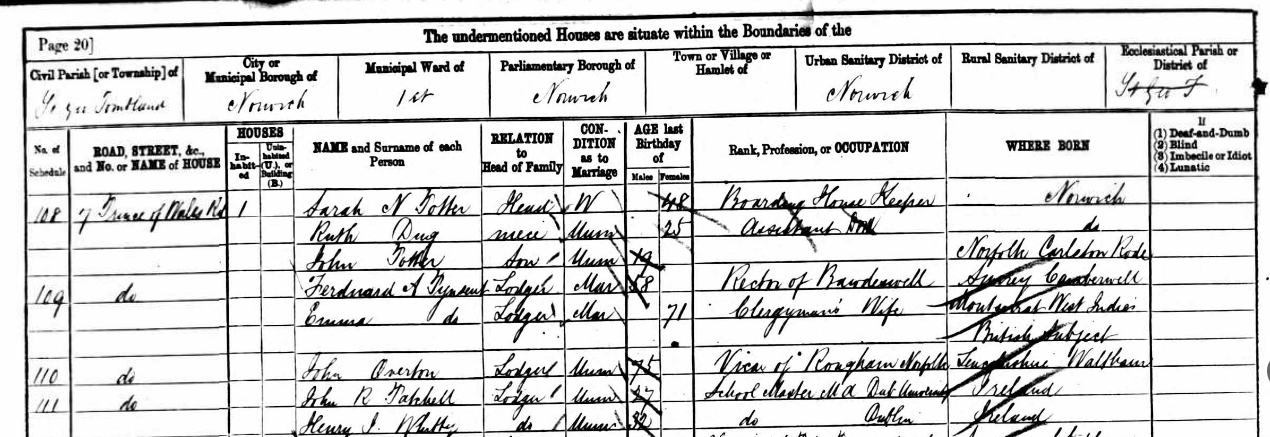 The undermentioned Houses are situate within the Boundaries of the
Page 20]
Civil Parish [or Township] of City or Municipal Borough of Municipal Ward of Parliamentary Borough of Town or Village or Hamlet of Urban Sanitary District of Rural Sanitary District of Ecclesiastical Parish or District of
St Geo Tombland Norwich 1st Norwich Norwich St Geo T
No. of Schedule ROAD, STREET, &c., and No. or NAME of HOUSE HOUSES Inhabited Uninhabited (U.), or Building (B.) NAME and Surname of each Person RELATION to Head of Family CONDITION as to Marriage AGE last Birthday of Males Females Rank, Profession, or OCCUPATION WHERE BORN If (1) Deaf-and-Dumb (2) Blind (3) Imbecile or Idiot (4) Lunatic
108 7 Prince of Wales Rd 1 Sarah N Head W 48 Boarding House Keeper Norwich
Ruth niece Unm 25 Assistant do
John Son Unm 19 Norfolk Carleton Rode
109 do A Lodger Mar 58 Rector of Bawdeswell Surrey Camberwell
Emma do Lodger Mar 71 Clergyman's Wife Montserrat West Indies
British Subject
110 do John Overton Lodger Unm 75 Vicar of Rougham Norfolk Waltham
111 do John R Lodger Unm 27 School Master Dub University Ireland
Henry J. do Unm 32 do Dublin Ireland